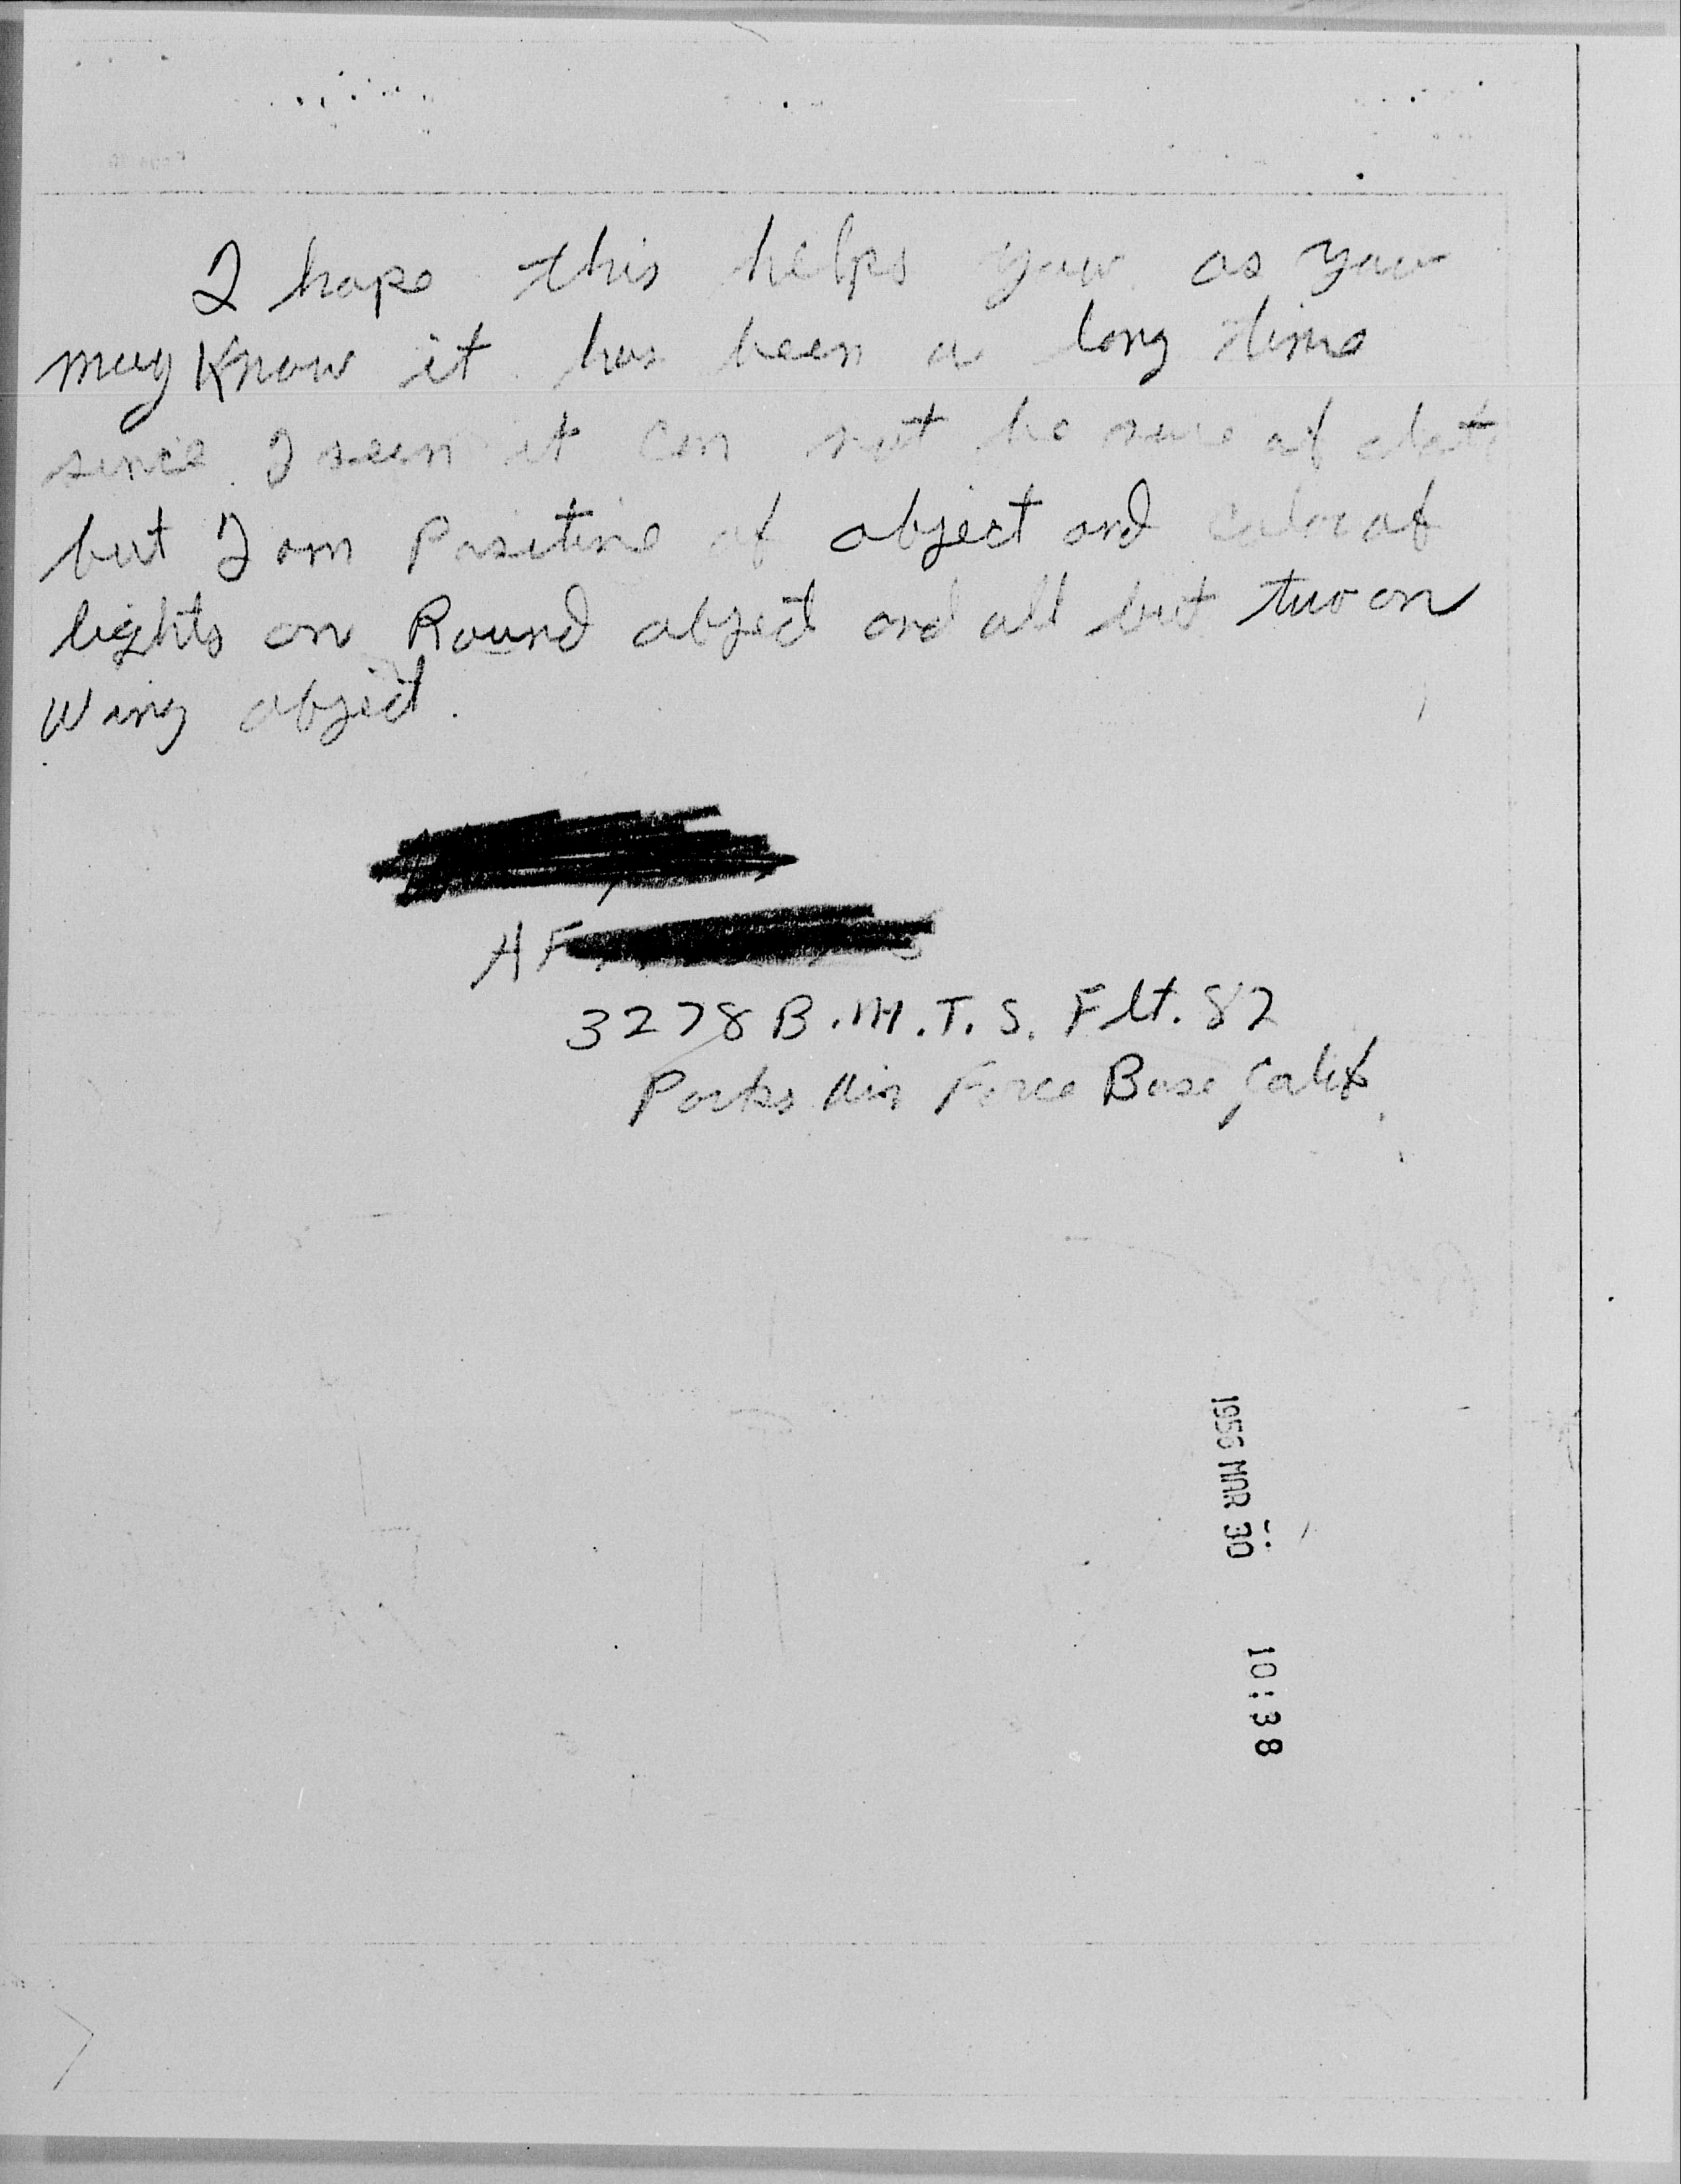 I hope this helps you as you
may Know it has been a long time
since I seen it can not be sure of date
but I am Positive of object and color of
lights on Round object and all but two on
Wing object.
AF
3278 B.M.T.S. Flt. 82
Parks Air Force Base, Calif.
1956 MAR 30 10:38